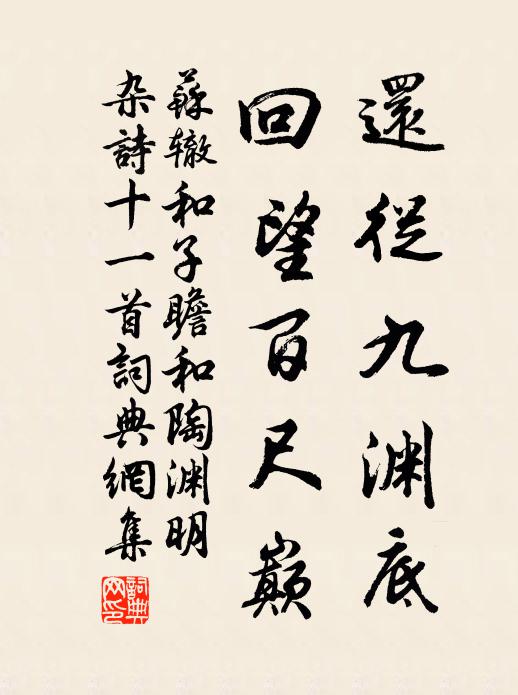 還從九渊底
回望百尺巔
蘇辙和子瞻和陶渊明
杂詩十一首詞典網集
詞典
网印